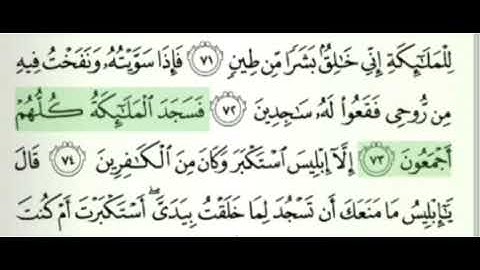 لِلْمَلَٰٓئِكَةِ إِنِّي خَٰلِقٌۢ بَشَرٗا مِّن طِينٖ ٧١ فَإِذَا سَوَّيۡتُهُۥ وَنَفَخۡتُ فِيهِ
مِن رُّوحِي فَقَعُواْ لَهُۥ سَٰجِدِينَ ٧٢ فَسَجَدَ ٱلۡمَلَٰٓئِكَةُ كُلُّهُمۡ
أَجۡمَعُونَ ٧٣ إِلَّآ إِبۡلِيسَ ٱسۡتَكۡبَرَ وَكَانَ مِنَ ٱلۡكَٰفِرِينَ ٧٤ قَالَ
يَٰٓإِبۡلِيسُ مَا مَنَعَكَ أَن تَسۡجُدَ لِمَا خَلَقۡتُ بِيَدَيَّۖ أَسۡتَكۡبَرۡتَ أَمۡ كُنتَ